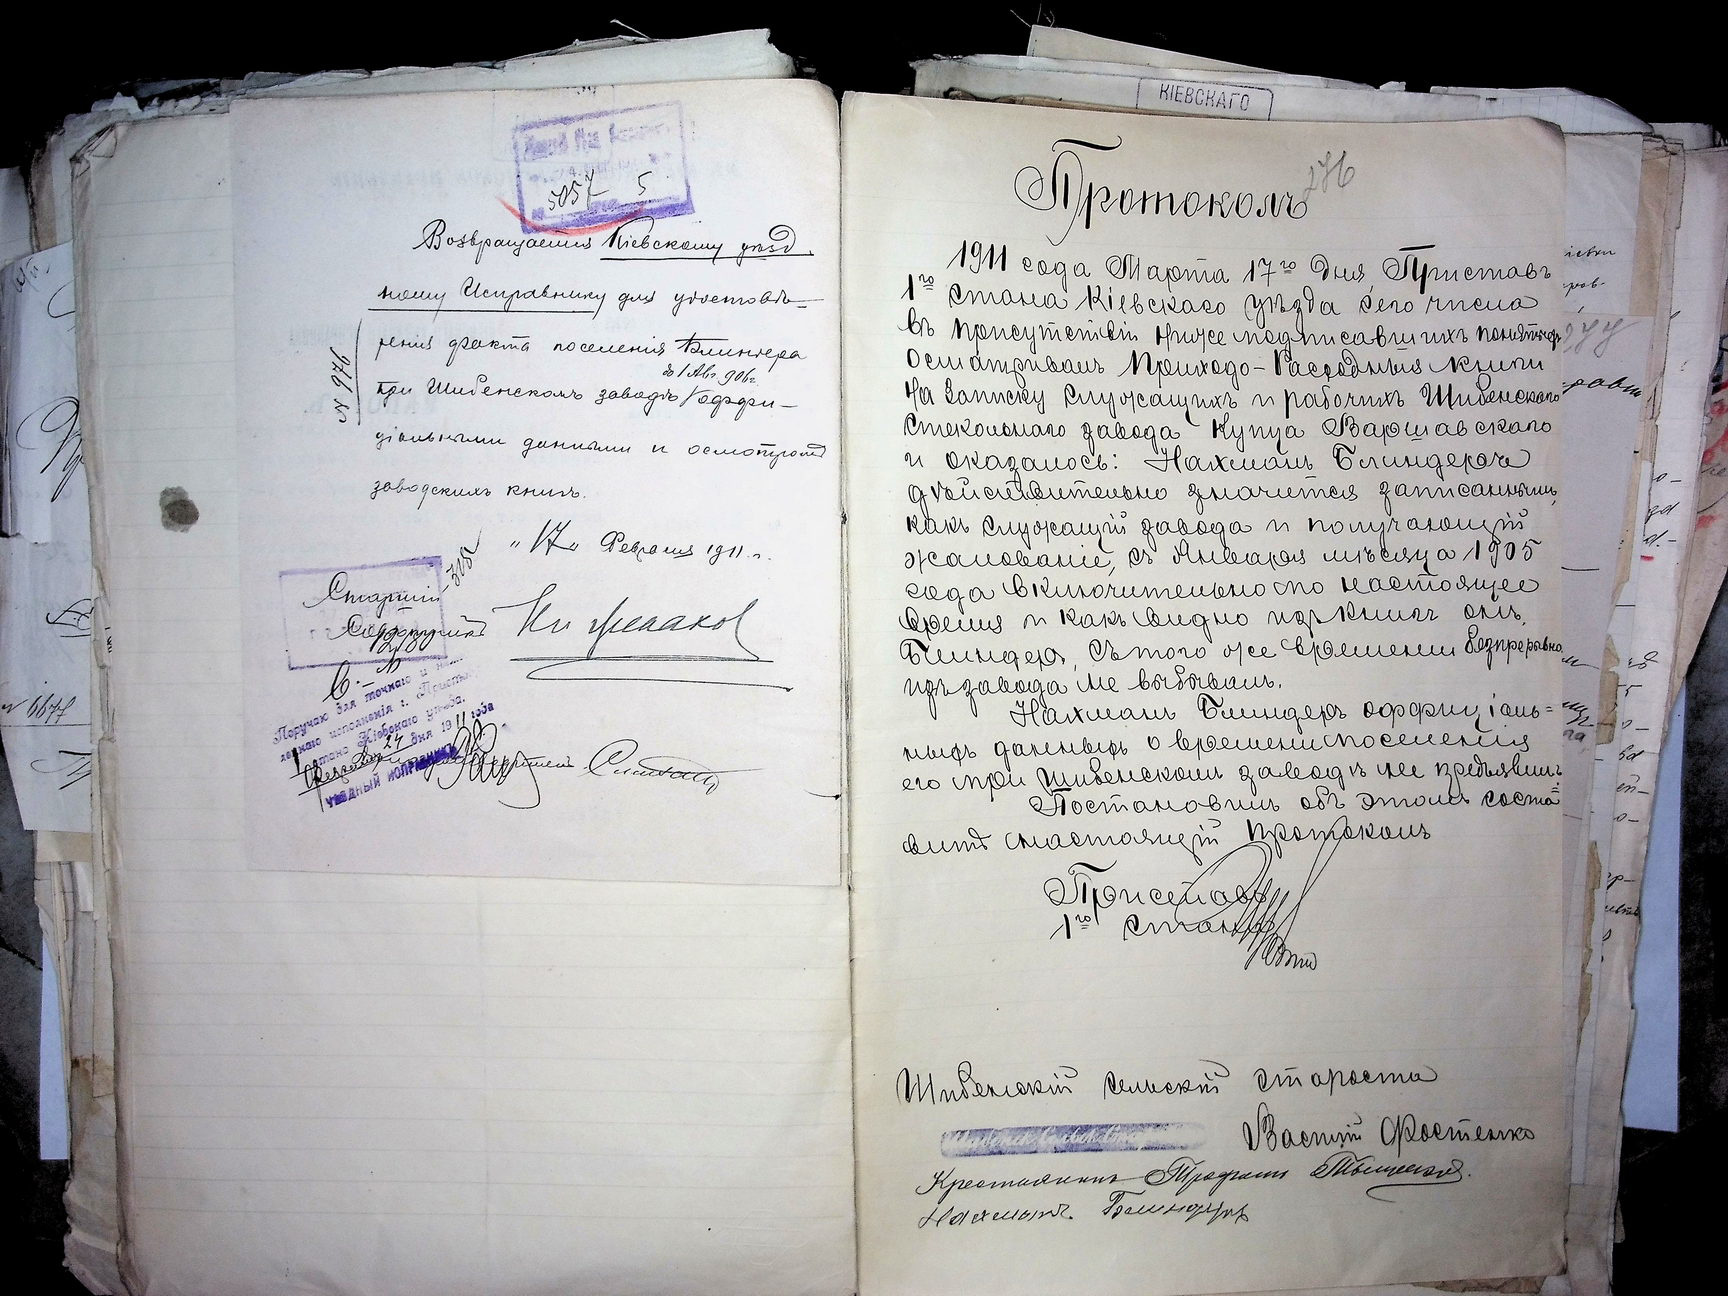 5057 5
Возвращается Кіевскому уѣзд
ному Исправнику для удостовѣ-
ренія факта поселенія Блиндера
до 1 Авг. 906 г.
при Шибенскомъ заводѣ /оффи-
ціальными данными и осмотромъ
заводскихъ книгъ.
№ 976
"17" Февраля 1911 г.
Старшій
Поручаю для точнаго и
исполненія г. Приставу
1 стана Кіевскаго уѣзда.
24 дня 1911 года
УѢЗДНЫЙ ИСПРАВНИКЪ
КІЕВСКАГО
276
Протоколъ
1911 года Марта 17го дня, Приставъ
1го стана Кіевскаго уѣзда сего числа
въ присутствіи нижеподписавшихъ понятыхъ
осматривалъ Приходо-Расходныя книги
на записку служащихъ и рабочихъ Шибенскаго
стекольнаго завода купца Варшавскаго
и оказалось: Нахманъ Блиндеръ
дѣйствительно значится записаннымъ,
какъ служащій завода и получающій
жалованіе, съ Января мѣсяца 1905
года включительно по настоящее
время и какъ видно изъ книгъ онъ,
Блиндеръ, съ того же времени безпрерывно
изъ завода не выбывалъ.
Нахманъ Блиндеръ оффиціаль=
ныхъ данныхъ о времени поселенія
его при Шибенскомъ заводѣ не предъявилъ
Постановилъ объ этомъ соста=
вить настоящій протоколъ
Приставъ
1го стана
Шибенскій сельскій староста
Василій Фостенко
Крестьянинъ Трофимъ
Нахманъ Блиндеръ